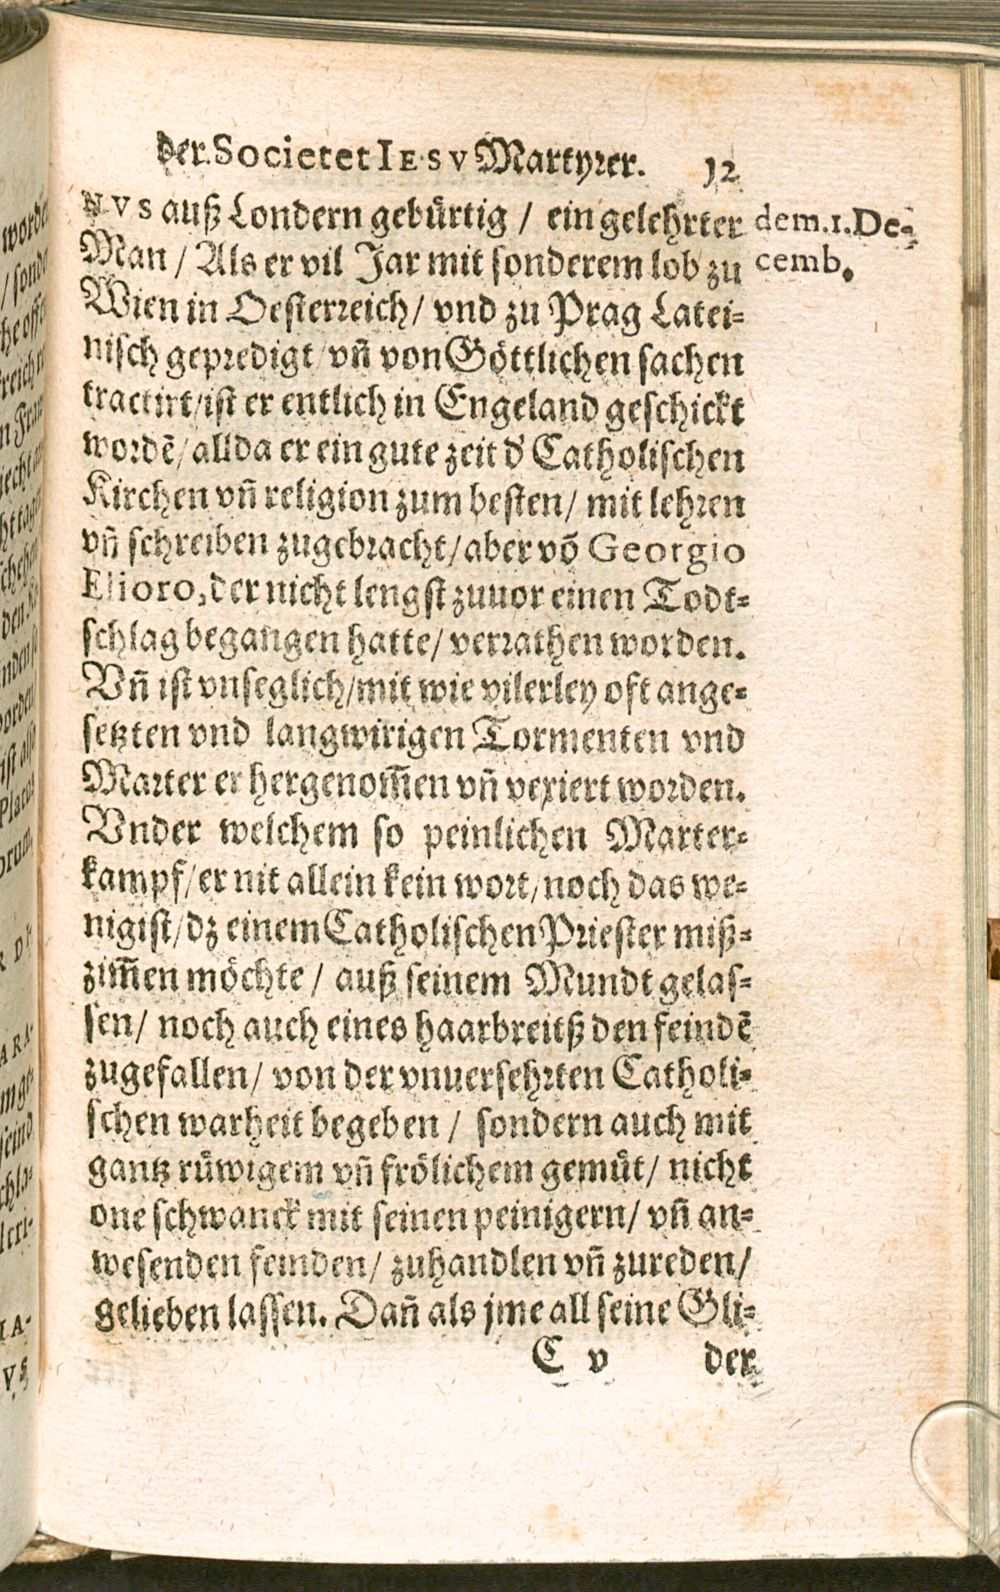 der Societet IESV Martyrer. 12
NVS auß Londern gebürtig / ein gelehrter
dem. 1. De-
Man / Als er vil Jar mit sonderem lob zu
cemb.
Wien in Oesterreich / vnd zu Prag Latei-
nisch gepredigt / vñ von Göttlichen sachen
tractirt / ist er entlich in Engeland geschickt
wordē / allda er ein gute zeit d' Catholischen
Kirchen vñ religion zum besten / mit lehren
vñ schreiben zugebracht / aber võ Georgio
Elioro, der nicht lengst zuuor einen Todt-
schlag begangen hatte / verrathen worden.
Vñ ist vnseglich / mit wie vilerley oft ange-
setzten vnd langwirigen Tormenten vnd
Marter er hergenom̄en vñ vexiert worden.
Vnder welchem so peinlichen Marter-
kampf / er nit allein kein wort / noch das we-
nigist / dz einem Catholischen Priester miß-
zim̄en möchte / auß seinem Mundt gelas-
sen / noch auch eines haarbreitß den feindē
zugefallen / von der vnuersehrten Catholi-
schen warheit begeben / sondern auch mit
gantz rüwigem vñ frölichem gemüt / nicht
one schwanck mit seinen peinigern / vñ an-
wesenden feinden / zuhandlen vñ zureden /
gelieben lassen. Dañ als jme all seine Gli-
C v der